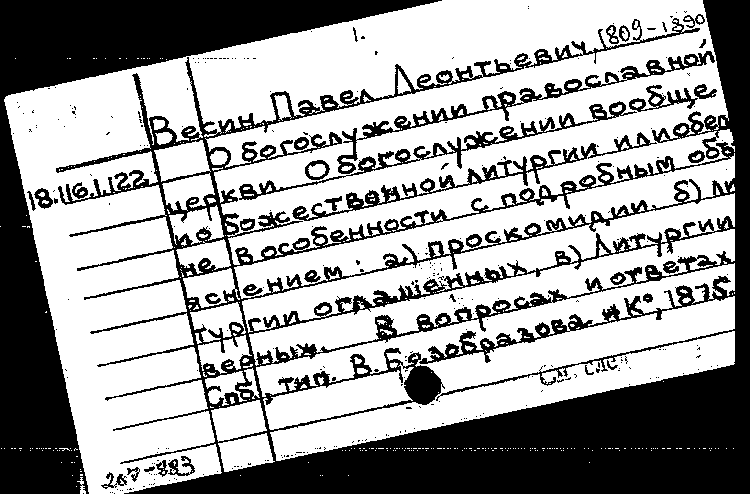 1.
Весин, Павел Леонтьевич, 1809-1890
О богослужении православной
18.116.1.122. церкви. О богослужении вообще
и о божественной литургии или обед
не в особенности с подробным объ
яснением: а) проскомидии. б) ли
тургии оглашенных, в) литургии
верных. В вопросах и ответах
Спб., тип. В. Безобразова. и К°, 1875.
См. след
207-883